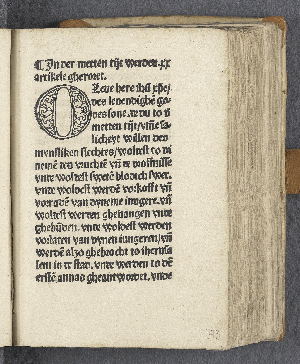 ¶ In der metten tijt werden xx
artikele gheroret.
O Leue here ihū xp̄e/
des leuendighē go-
des sone. de du to d̄
metten tijt/ vm̄e sa-
licheyt willen des
mynsliken slechtes/ woltest to di
neme den vruchtē vn̄ de
vnde woldest swetē blodich swet.
vnde woldest werdē vorkofft vn̄
vorradē van dyneme iungere. vn̄
woltest werden ghevangen vnde
ghebūden. vnde woldest werden
vorlaten van dynen iungeren/ vn̄
werdē alzo ghebrocht to iherusa
lem in de stad. vnde werden to dē
erstē annas gheantwordet. vnde